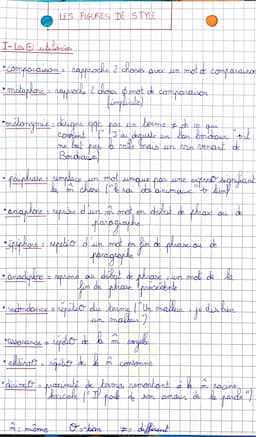 LES FIGURES DE STYLE
I- Les ⊕ utilisées
• comparaison = rapproche 2 choses avec un mot de comparaison
• métaphore = rapproche 2 choses ∅ mot de comparaison
(implicite)
• métonymie = désigne qqc par un terme ≠ de ce qui
convient ("J'ai dégusté un bon bordeaux" → il
ne boit pas la ville mais un vin venant de
Bordeaux)
• périphrase = remplace un mot unique par une expres° signifiant
la m̂ chose ("le roi des animaux" → lion)
• anaphore = reprise d'un m̂ mot en début de phrase ou de
paragraphe
• épiphore = répétit° d'un m̂ mot en fin de phrase ou de
paragraphe
• anadiplose = reprend au début de phrase, un mot de la
fin de phrase précédente
• redondance = répétit° du terme ("Un malheur, je dis bien
un malheur")
• assonance = répétit° de la m̂ voyelle
• allitérat° = répétit° de la m̂ consonne
• dérivat° = proximité de termes remontant à la m̂ racine
lexicale ("Il parle de son amour de la parole")
m̂ = même ≠ = different